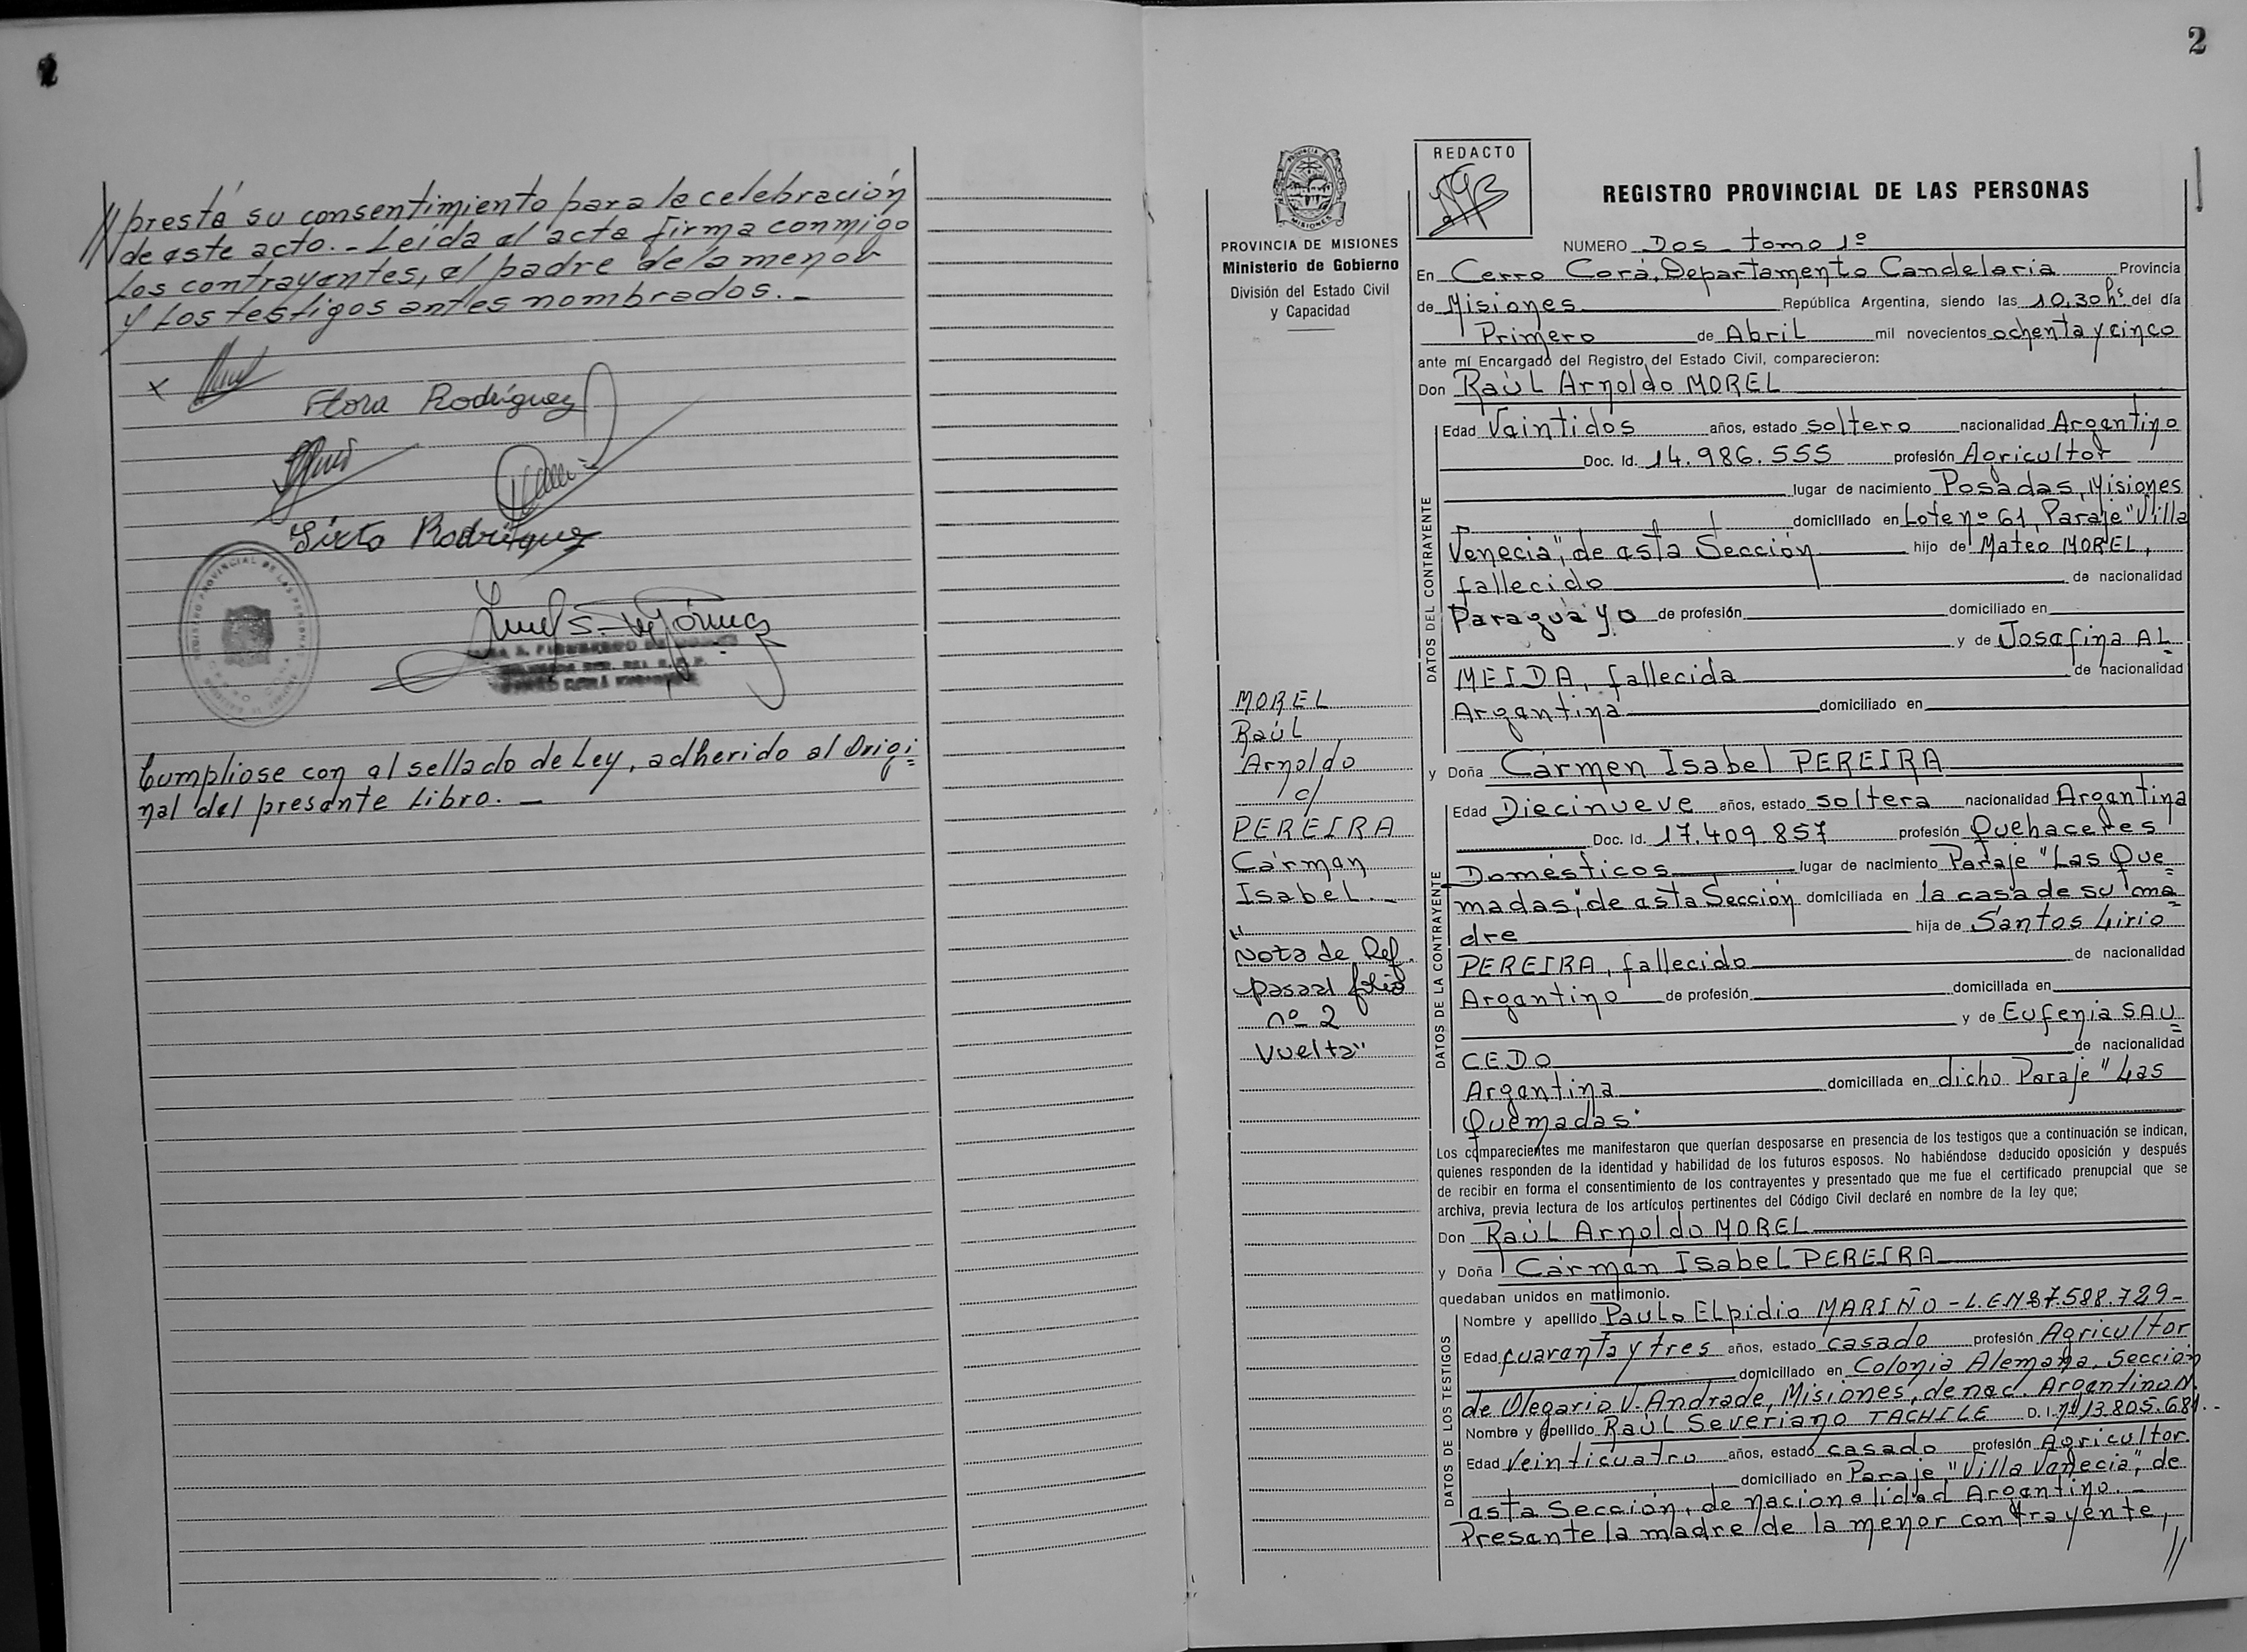 // prestá su consentimiento para la celebración
de este acto.- Leída el acta firma conmigo
los contrayentes, el padre de la menor
y los testigos antes nombrados.-
x
Flora Rodríguez
Sixto Rodríguez
REGISTRO PROVINCIAL DE LAS PERSONAS
Cumpliose con el sellado de Ley, adherido al Origi=
nal del presente Libro.-
2
PROVINCIA DE MISIONES
Ministerio de Gobierno
División del Estado Civil
y Capacidad
MOREL
Raúl
Arnoldo
c/
PEREIRA
Cármen
Isabel.-
"
Nota de Ref.
pasa al folio
nº 2
Vuelta"
REDACTO
REGISTRO PROVINCIAL DE LAS PERSONAS
NUMERO Dos - tomo 1º
En Cerro Corá, Departamento Candelaria Provincia
de Misiones República Argentina, siendo las 10,30 hs del día
Primero de Abril mil novecientos ochenta y cinco
ante mí Encargado del Registro del Estado Civil, comparecieron:
Don Raúl Arnoldo MOREL
DATOS DEL CONTRAYENTE
Edad Veintidos años, estado soltero nacionalidad Argentino
Doc. Id. 14.986.555 profesión Agricultor
lugar de nacimiento Posadas, Misiones
domiciliado en Lote nº 61, Paraje "Villa
Venecia", de esta Sección hijo de Mateo MOREL,
fallecido de nacionalidad
Paraguayo de profesión domiciliado en
y de Josefina AL=
MEIDA, fallecida de nacionalidad
Argentina domiciliado en
y Doña Cármen Isabel PEREIRA
DATOS DE LA CONTRAYENTE
Edad Diecinueve años, estado soltera nacionalidad Argentina
Doc. Id. 17.409.857 profesión Quehaceres
Domésticos lugar de nacimiento Paraje "Las Que=
madas", de esta Sección domiciliada en la casa de su ma=
dre hija de Santos Lirio
PEREIRA, fallecido de nacionalidad
Argentino de profesión domiciliada en
y de Eufenia SAU=
CEDO de nacionalidad
Argentina domiciliada en dicho Paraje "Las
Quemadas"
Los comparecientes me manifestaron que querían desposarse en presencia de los testigos que a continuación se indican,
quienes responden de la identidad y habilidad de los futuros esposos. No habiéndose deducido oposición y después
de recibir en forma el consentimiento de los contrayentes y presentado que me fue el certificado prenupcial que se
archiva, previa lectura de los artículos pertinentes del Código Civil declaré en nombre de la ley que;
Don Raúl Arnoldo MOREL
y Doña Cármen Isabel PEREIRA
quedaban unidos en matrimonio.
DATOS DE LOS TESTIGOS
Nombre y apellido Paulo Elpidio MARIÑO - L.E.Nº 7.588.729-
Edad cuarenta y tres años, estado casado profesión Agricultor
domiciliado en Colonia Alemana, Sección
de Olegario V. Andrade, Misiones, de nac. Argentino
Nombre y apellido Raúl Severiano TACHILE D.I. Nº 13.805.681.-
Edad Veinticuatro años, estado casado profesión Agricultor
domiciliado en Paraje "Villa Venecia", de
esta Sección, de nacionalidad Argentino.-
Presente la madre de la menor contrayente, //